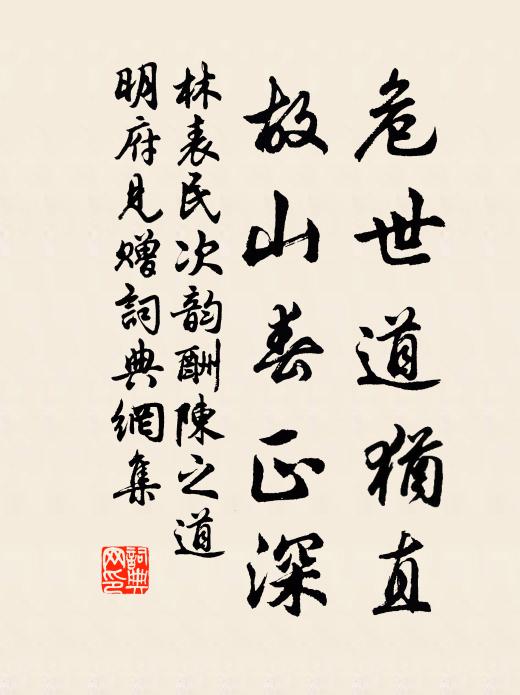 危世道猶直
故山春正深
林表民次韵酬陳之道
明府見贈詞典網集
詞典
网印